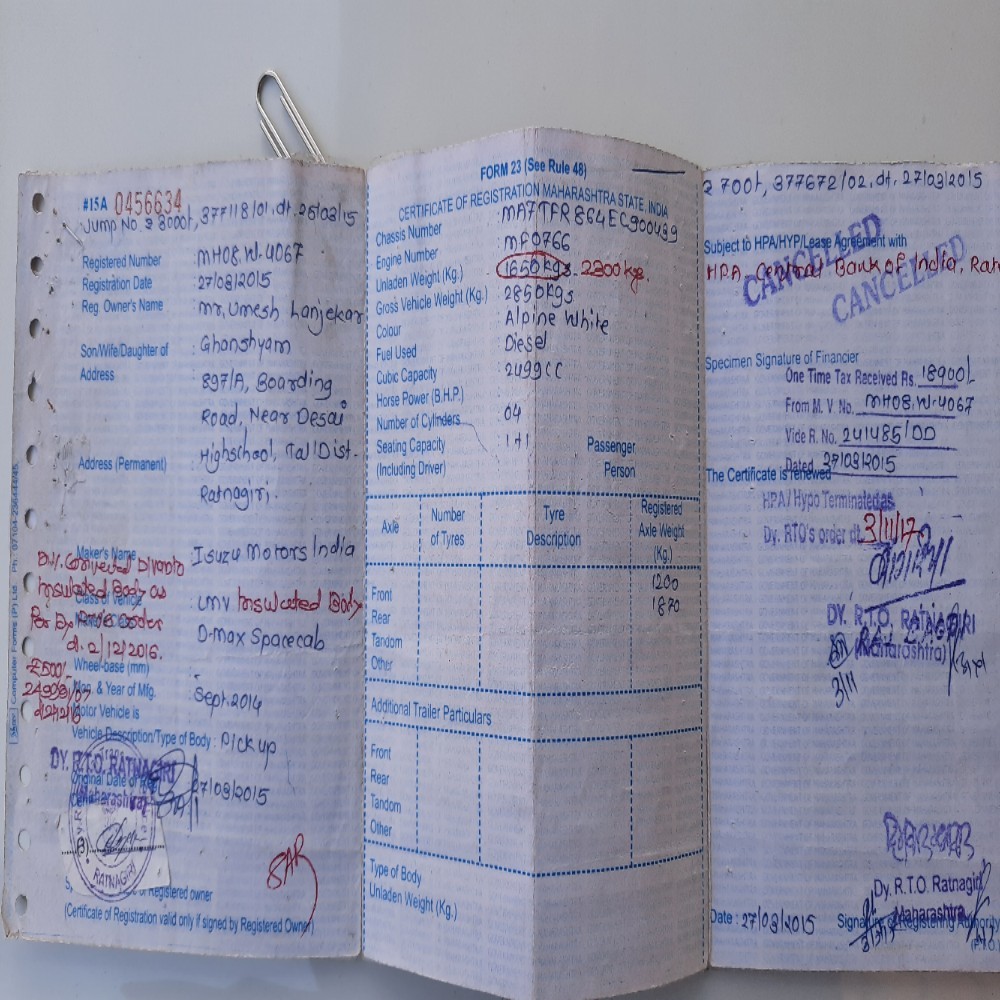 #15A 0456634
Jump No. 377118/01, dt. 26/03/15
Registered Number : MH08.W.4067
Registration Date : 27/03/2015
Reg. Owner's Name : mr. Umesh Lanjekar
Son/Wife/Daughter of : Ghanshyam
Address : 897/A, Boarding
Road, Near Desai
Address (Permanent) : Highschool, Tal/Dist-
Ratnagiri.
Maker's Name : Isuzu Motors India
Insulated Body as
d. 2/12/2016.
Class of Vehicle : LMV Insulated Body
D-max Spacecab
Wheel-base (mm)
Mon. & Year of Mfg. : Sept. 2014
Motor Vehicle is
Vehicle Description/Type of Body : Pick up
DY. R.T.O. RATNAGIRI
(Maharashtra)
Original Date of 27/03/2015
RATNAGIRI
Registered owner
(Certificate of Registration valid only if signed by Registered Owner)
FORM 23 (See Rule 48)
CERTIFICATE OF REGISTRATION MAHARASHTRA STATE, INDIA
Chassis Number : MA7TFR864EC900439
Engine Number : MF0766
Unladen Weight (Kg.) : 1650 Kgs. 2300 kgs.
Gross Vehicle Weight (Kg.) : 2850 Kgs
Colour : Alpine White
Fuel Used : Diesel
Cubic Capacity : 2499 CC
Horse Power (B.H.P.)
Number of Cylinders : 04
Seating Capacity : 1+1 Passenger
(Including Driver) Person
Axle Number of Tyres Tyre Description Registered Axle Weight (Kg.)
Front 1200
Rear 1870
Tandom
Other
Additional Trailer Particulars
Front
Rear
Tandom
Other
Type of Body
Unladen Weight (Kg.)
700t, 377672/02, dt. 27/03/2015
Subject to HPA/HYP/Lease Agreement with
HPA Central Bank of India,
CANCELLED
CANCELLED
Specimen Signature of Financier
One Time Tax Received Rs. 18900/-
From M. V. No. MH08.W.4067
Vide R. No. 241485/DD
Dated 27/03/2015
The Certificate is renewed
HPA / Hypo Terminated as
Dy. RTO's order dt. 3/11/17
DY. R.T.O. RATNAGIRI
(Maharashtra)
3/11
Dy. R.T.O. Ratnagiri
Maharashtra
Date : 27/03/2015 Signature of Registering Authority